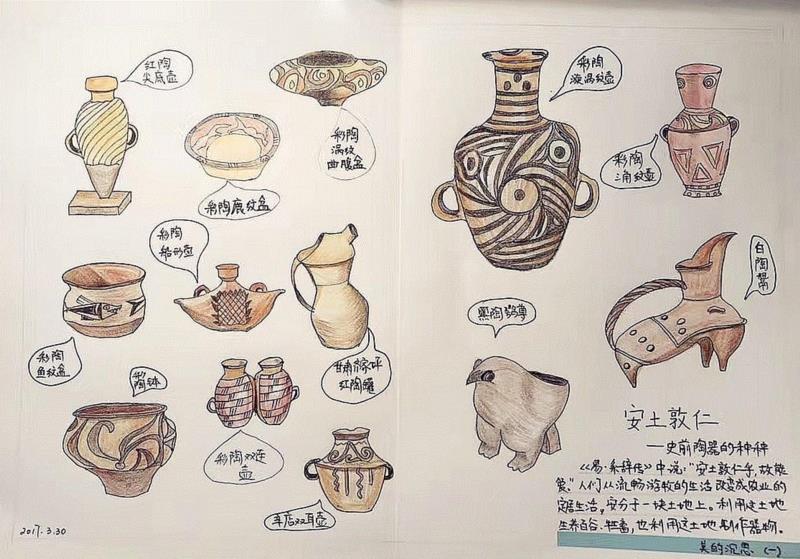 红陶
尖底壶
彩陶
涡纹
曲腹盆
彩陶鹿纹盆
彩陶
船形壶
彩陶
鱼纹盆
甘肃
红陶罐
彩
陶钵
彩陶双连
壶
双耳壶
彩陶
漩涡纹壶
彩陶
三角纹壶
白
陶
鬶
黑陶鸮尊
安土敦仁
—史前陶器的种种
《易·系辞传》中说:“安土敦仁乎,故能
爱。”人们从流畅游牧的生活改变成农业的
定居生活,安分于一块土地上。利用这土地
生养百谷、牲畜,也利用这土地制作器物。
美的沉思(一)
2017.3.30